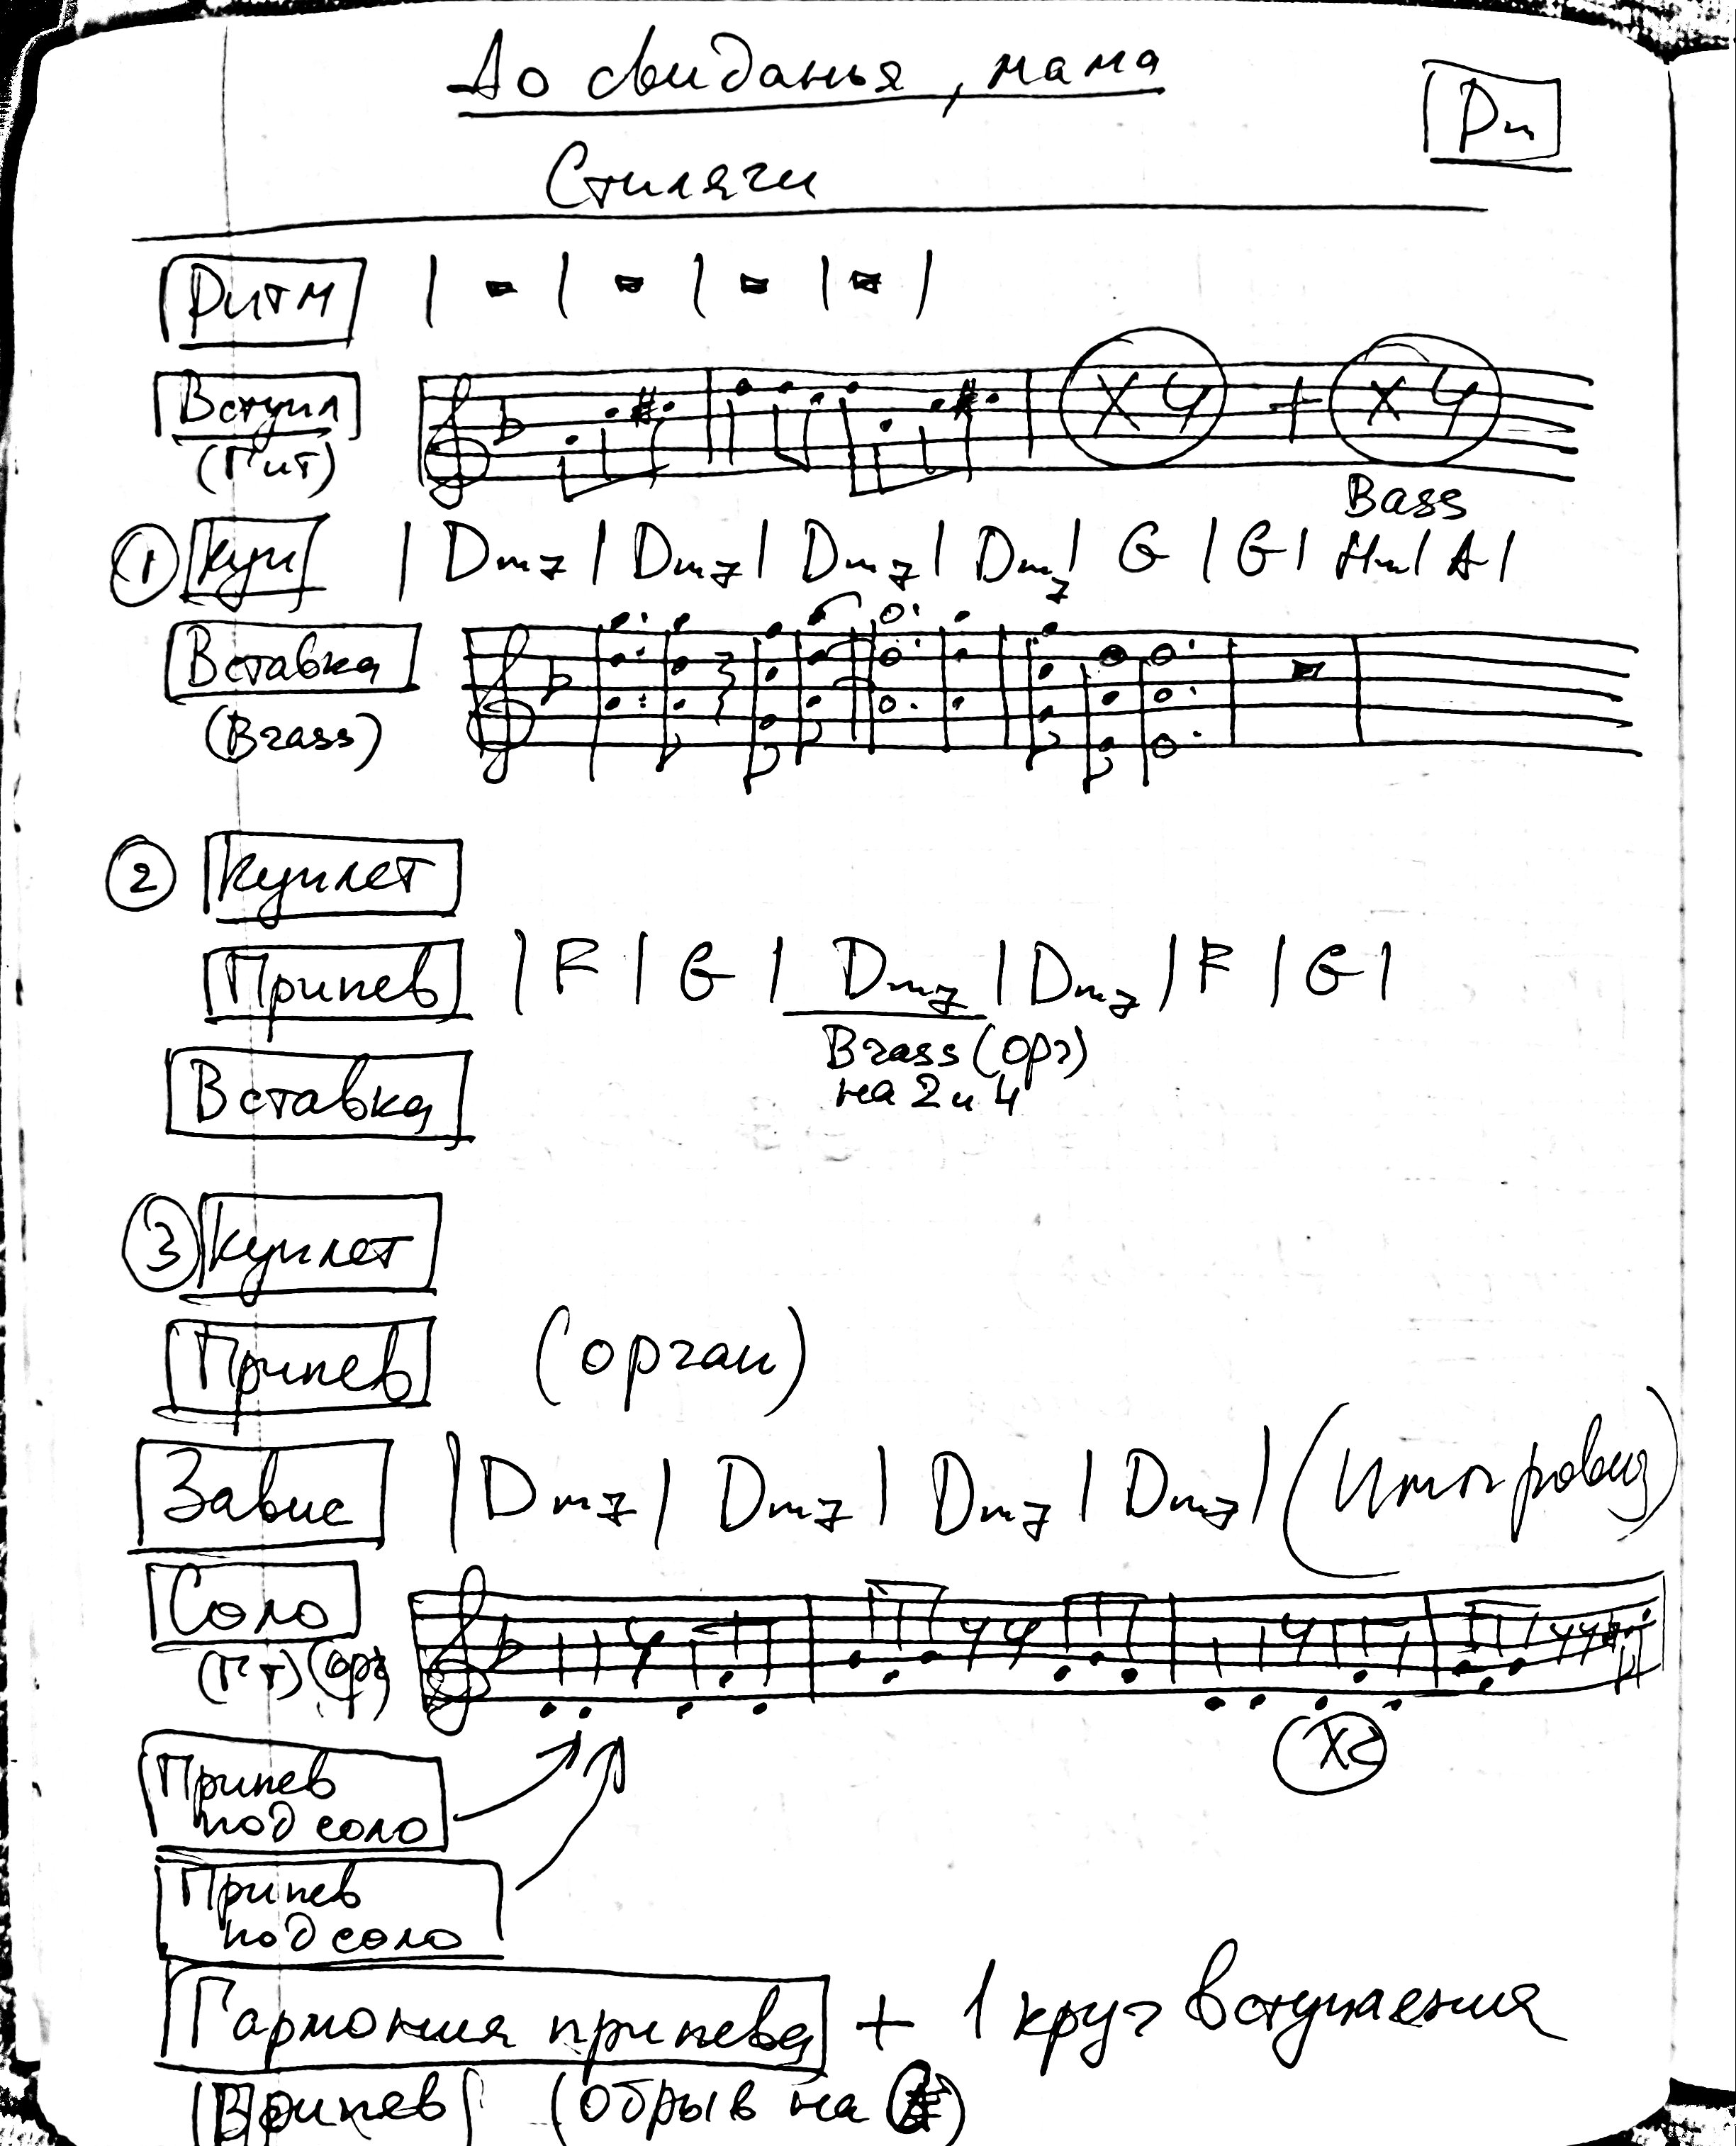 До свиданья, мама
Dm
Стиляги
Ритм
Вступл
(Гит)
X4 + X4
Bass
1 Куп | Dm7 | Dm7 | Dm7 | Dm7 | G | G | Hm | A |
Вставка
(Brass)
2 Куплет
Припев | F | G | Dm7 | Dm7 | F | G |
Brass (орг)
на 2 и 4
Вставка
3 Куплет
Припев (орган)
Завис | Dm7 | Dm7 | Dm7 | Dm7 |
Соло
(Гт) (орг)
X2
Припев
под соло
Припев
под соло
Гармония припева + 1 круг вступления
Припев (Обрыв на